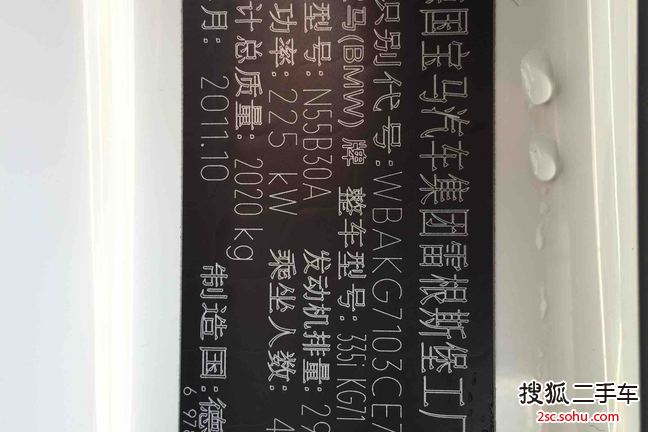 德国宝马汽车集团雷根斯堡工厂
识别代号:WBAKG7103CE7
宝马(BMW)牌 整车型号: 335i KG71
型号: N55B30A 发动机排量: 29
功率: 225 kW 乘坐人数: 4
计总质量: 2020 kg
年月: 2011.10 制造国: 德
6 978
搜狐二手车
2sc.sohu.com